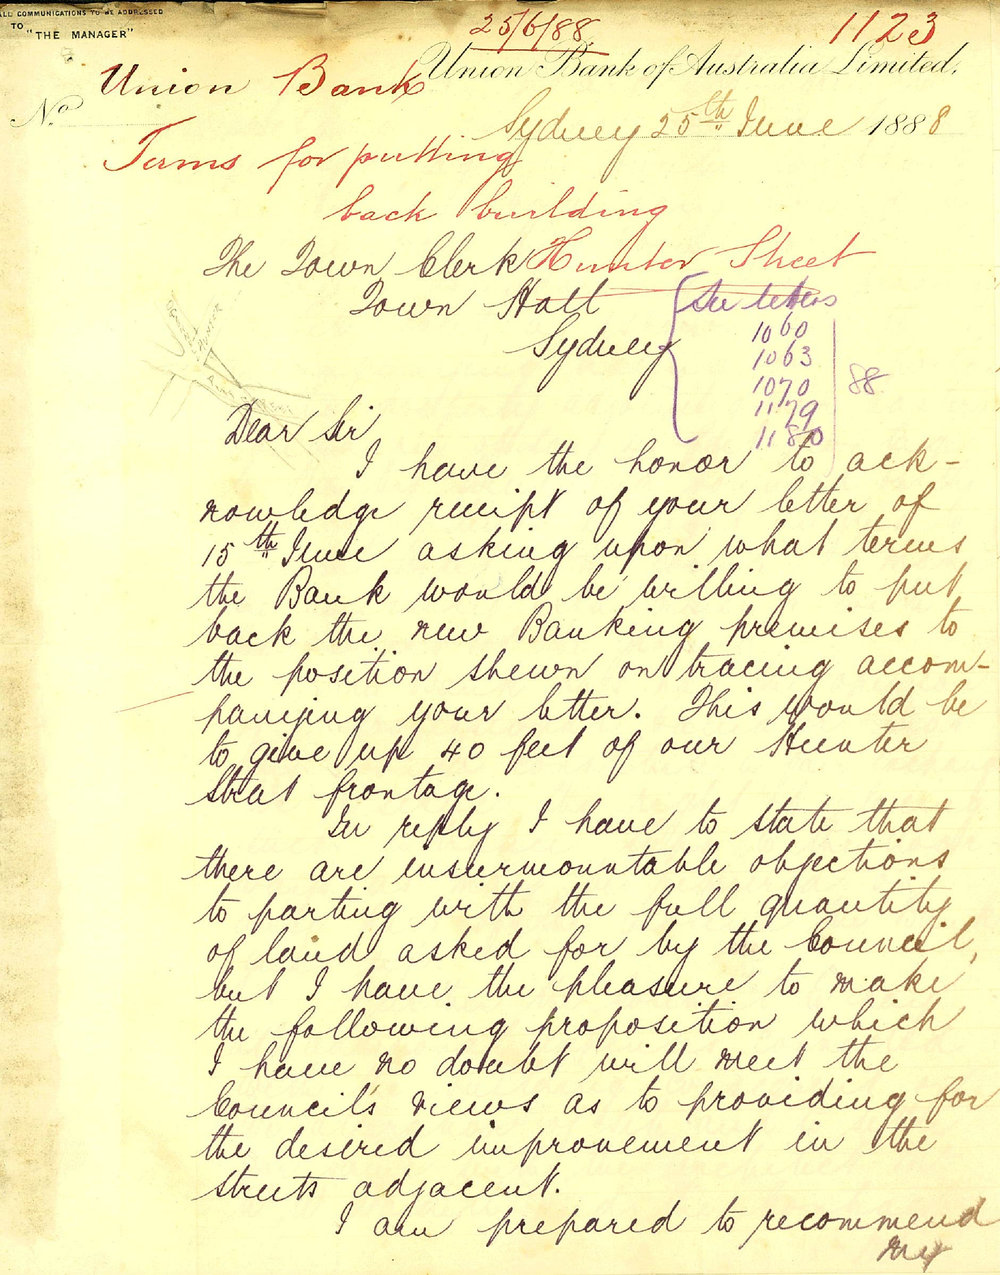 ALL COMMUNICATIONS TO BE ADDRESSED
TO
"THE MANAGER"
25/6/88
1123
Union Bank of Australia Limited,
Union Bank
No
Sydney 25th June 1888
Terms for putting
back building
Hunter Street
The Town Clerk
Town Hall
Sydney
See letters
1060
1063
1070
1179
1180
88
Dear Sir
I have the honor to ack-
nowledge receipt of your letter of
15th June asking upon what terms
the Bank would be willing to put
back the new Banking premises to
the position shewn on tracing accom-
panying your letter. This would be
to give up 40 feet of our Hunter
Street frontage.
In reply I have to state that
there are insurmountable objections
to parting with the full quantity
of land asked for by the Council,
but I have the pleasure to make
the following proposition which
I have no doubt will meet the
Council's views as to providing for
the desired improvement in the
streets adjacent.
I am prepared to recommend
my